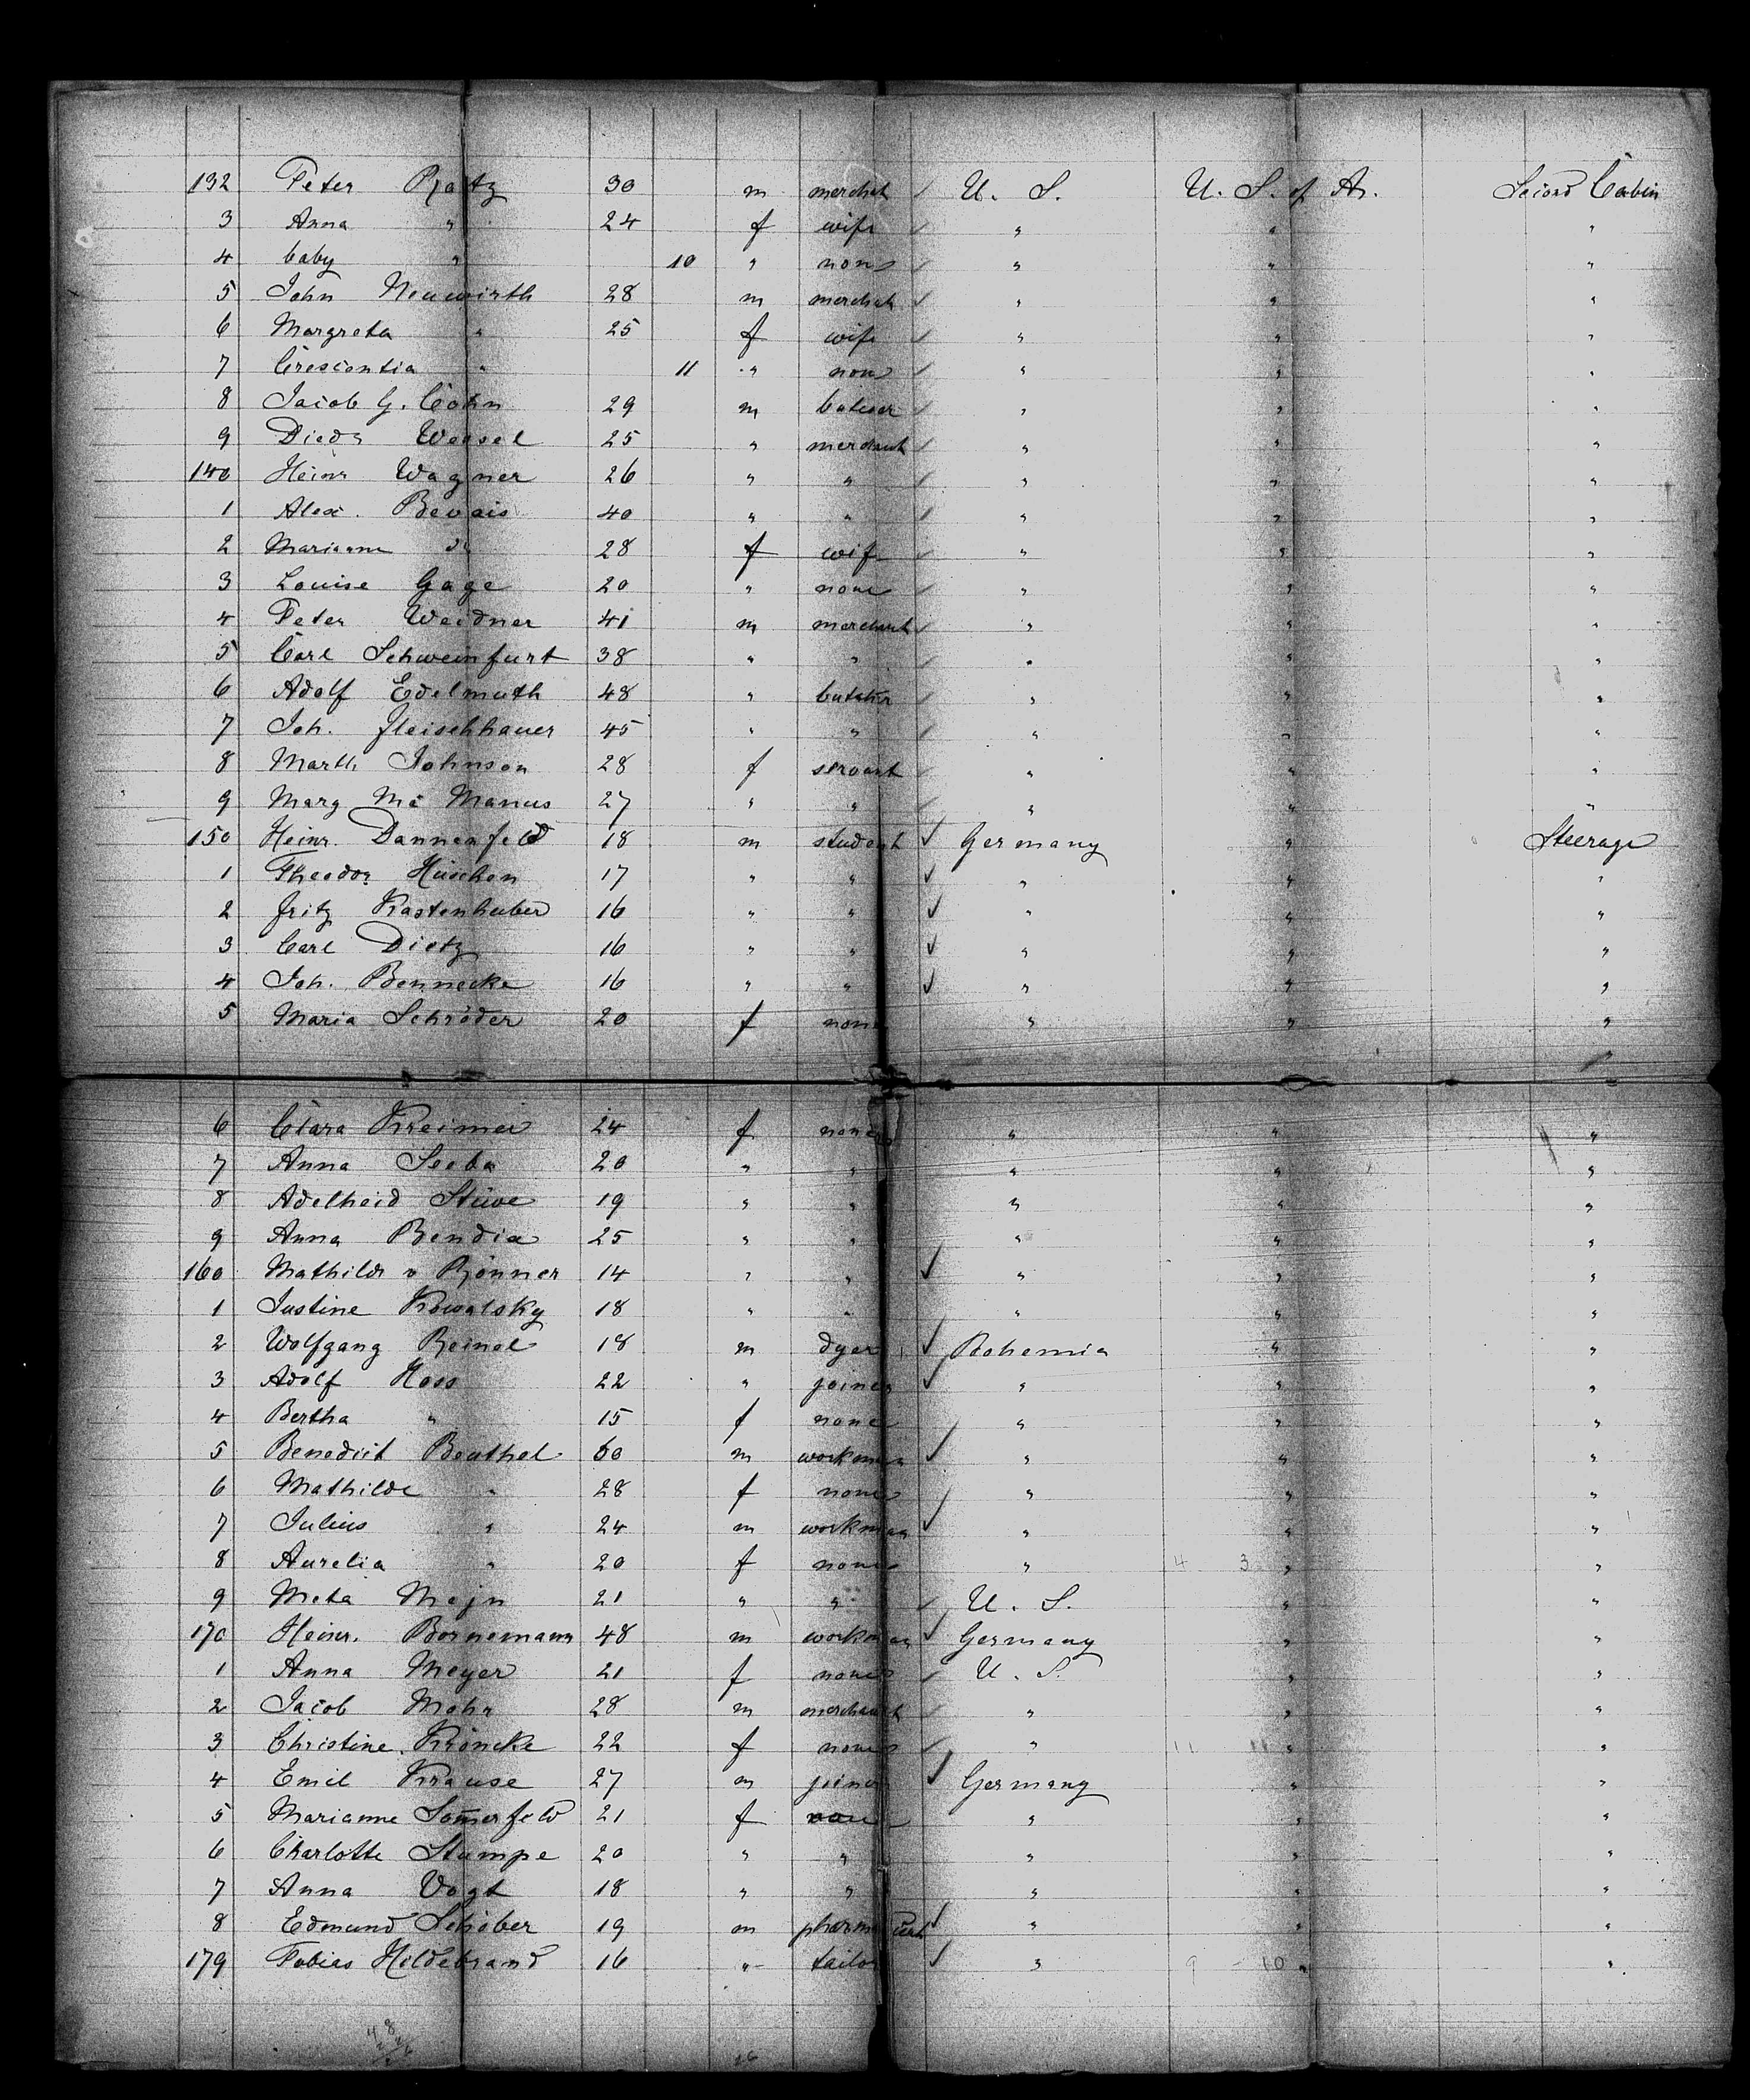 132 Peter Raatz 30 m merchat U. S. U. S. of A. Second Cabin
3 Anna " 24 f wife " " "
4 baby " 10 " none " " "
5 John Neuwirth 28 m merchat " " "
6 Margreta " 25 f wife " " "
7 Crescentia " 11 " none " " "
8 Jacob G. Cohn 29 m butcher " " "
9 Diedr Wessel 25 " merchant " " "
140 Heinr Wagner 26 " " " " "
1 Alex. Bevais 40 " " " " "
2 Marianne " 28 f wife " " "
3 Louise Gage 20 " none " " "
4 Peter Weidner 41 m merchant " " "
5 Carl Schweinfurt 38 " " " " "
6 Adolf Edelmuth 48 " butcher " " "
7 Joh. Fleischhauer 45 " " " " "
8 Marth Johnson 28 f servant " " "
9 Marg Mc Manus 27 " " " " "
150 Heinr. Dannenfeld 18 m student Germany " Steerage
1 Theodor Hüschen 17 " " " " "
2 Fritz Kastenhuber 16 " " " " "
3 Carl Dietz 16 " " " " "
4 Joh. Bennecke 16 " " " " "
5 Maria Schröder 20 f none " " "
6 Clara Kreimer 24 f none " " "
7 Anna Seeba 20 " " " " "
8 Adelheid Stüve 19 " " " " "
9 Anna Bendia 25 " " " " "
160 Mathilde v Rönner 14 " " " " "
1 Justine Kowalsky 18 " " " " "
2 Wolfgang Reinel 18 m dyer Bohemia " "
3 Adolf Hoss 22 " joiner " " "
4 Bertha " 15 f none " " "
5 Benedict Beuthel 60 m workman " " "
6 Mathilde " 28 f none " " "
7 Julius " 24 m workman " " "
8 Aurelia " 20 f none " 4 3 " "
9 Meta Mejn 21 " " U. S. " "
170 Heinr. Bornemann 48 m workman Germany " "
1 Anna Meyer 21 f none U. S. " "
2 Jacob Mohr 28 m merchant " " "
3 Christine Kröncke 22 f none " 11 11 " "
4 Emil Krause 27 m joiner Germany " "
5 Marianne Som̅erfeld 21 f none " " "
6 Charlotte Stumpe 20 " " " " "
7 Anna Vogt 18 " " " " "
8 Edmund Schober 19 m pharmaceut " " "
179 Tobias Hildebrand 16 " tailor " 9 - 10 " "